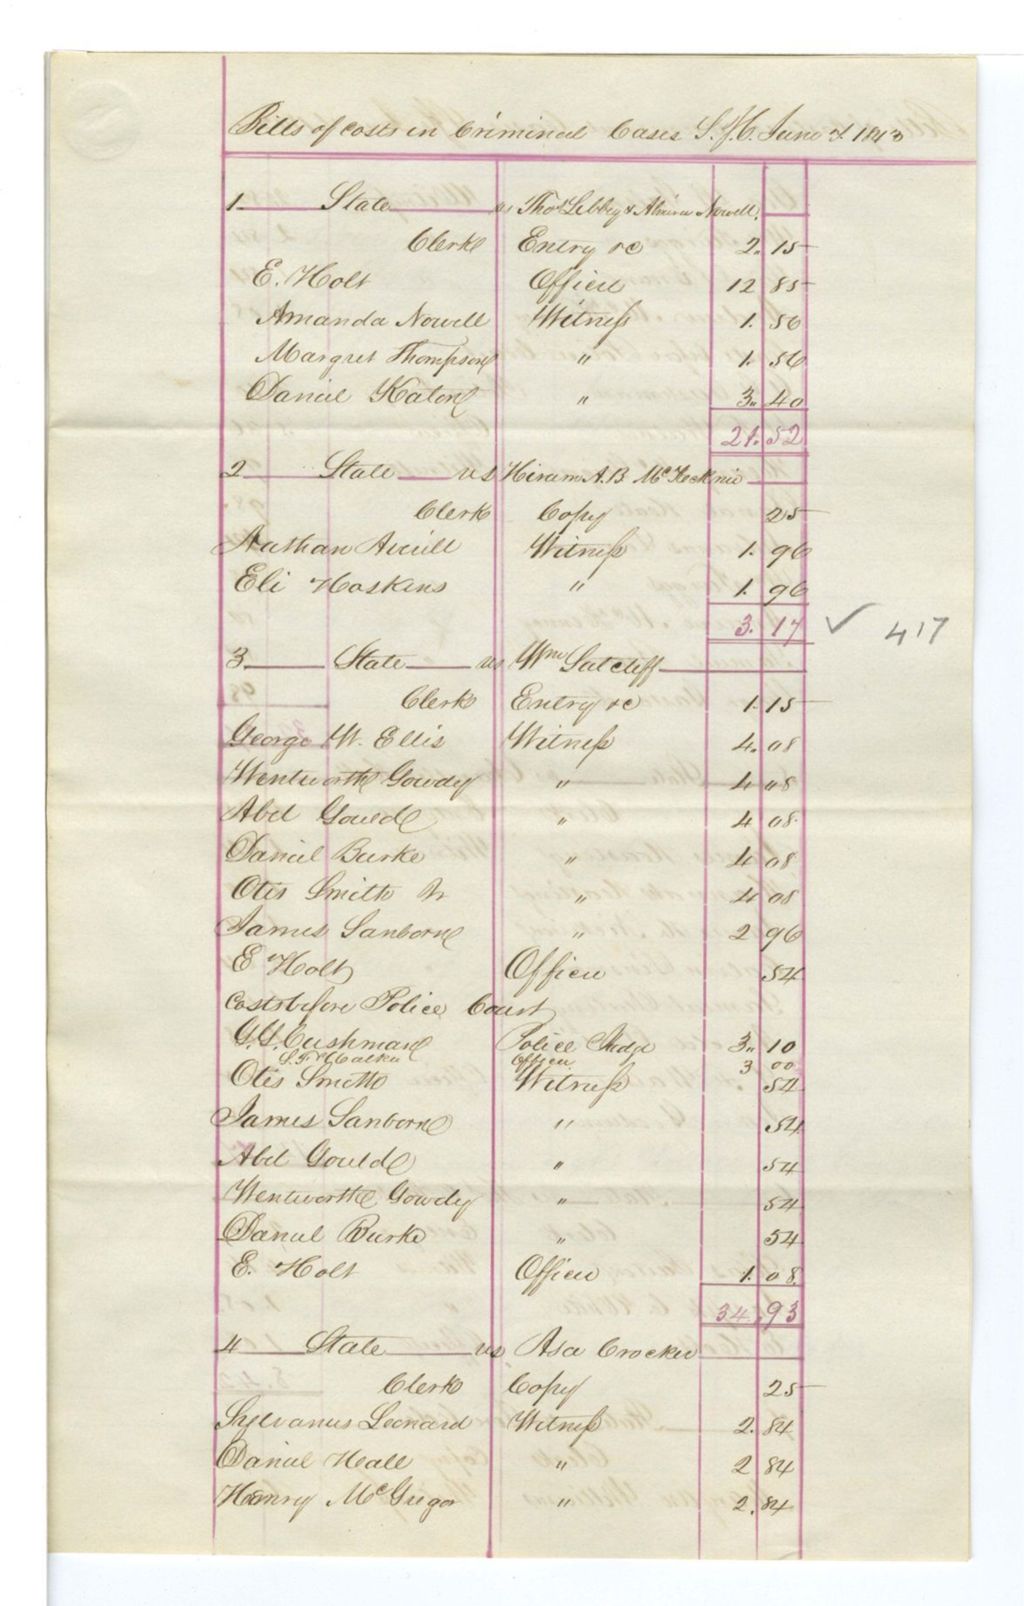 Bills of costs in Criminal Cases S.J.C. June T. 1843
1 State vs Thos Libbey & Almira Nowell.
Clerk Entry &c 2. 15
E. Holt Officer 12 85
Amanda Nowell Witness 1. 56
Margret Thompson " 1. 56
Daniel Katon " 3. 40
21. 52
2 State vs Hiram A.B McKecknie
Clerk Copy 25
Nathan Averill Witness 1. 96
Eli Hoskins " 1. 96
3. 17 ✓ 4 17
3 State vs Wm Sutcliff
Clerk Entry &c 1. 15
George W. Ellis Witness 4. 08
Wentworth Gowdy " 4 08
Abel Gould " 4 08
Daniel Burke " 4 08
Otis Smith Jr " 4 08
James Sanborn " 2 96
E Holt Officer 54
Costs before Police Court
G. Cushman Police Judge 3. 10
Officer 3 00
Otis Smith Witness 54
James Sanborn " 54
Abel Gould " 54
Wentworth Gowdy " 54
Daniel Burke " 54
E. Holt Officer 1. 08
34. 93
4 State vs Asa Crocker
Clerk Copy 25
Sylvanus Leonard Witness 2. 84
Daniel Hall " 2 84
Henry McGrigor " 2. 84